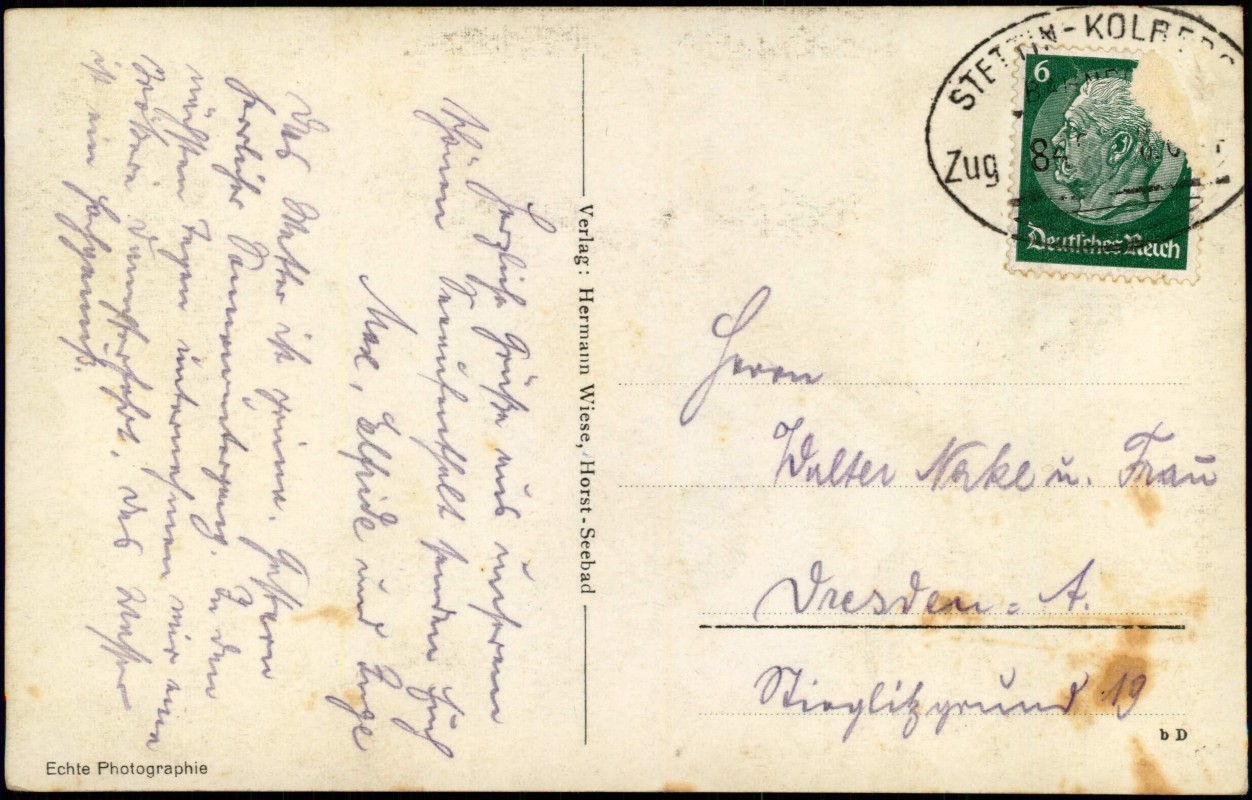 Herzliche Grüße aus unserem
schönen Seeaufenthalt senden Euch
Max, Elfriede und Inge
Das Wetter ist prima. Gestern
herrlicher Sonnenuntergang. In den
nächsten Tagen unternehmen wir eine
größere Dampferfahrt. Das Wasser
ist ein Hochgenuß.
Echte Photographie
Verlag: Hermann Wiese, Horst-Seebad
STETTIN-KOLBERG
Zug 84
6
Deutsches Reich
Herrn
Walter u. Frau
Dresden-A.
Stieglitzgrund 19
b D